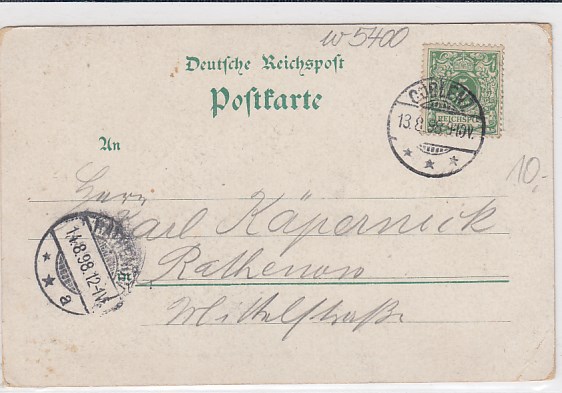 w5400
Deutsche Reichspost
Postkarte
COBLENZ
13.8.98.
REICHSPOST
An
10,-
Herr
Karl Käpernick
Rathenow
Mittelstraße
14.8.98.12-1N.
a